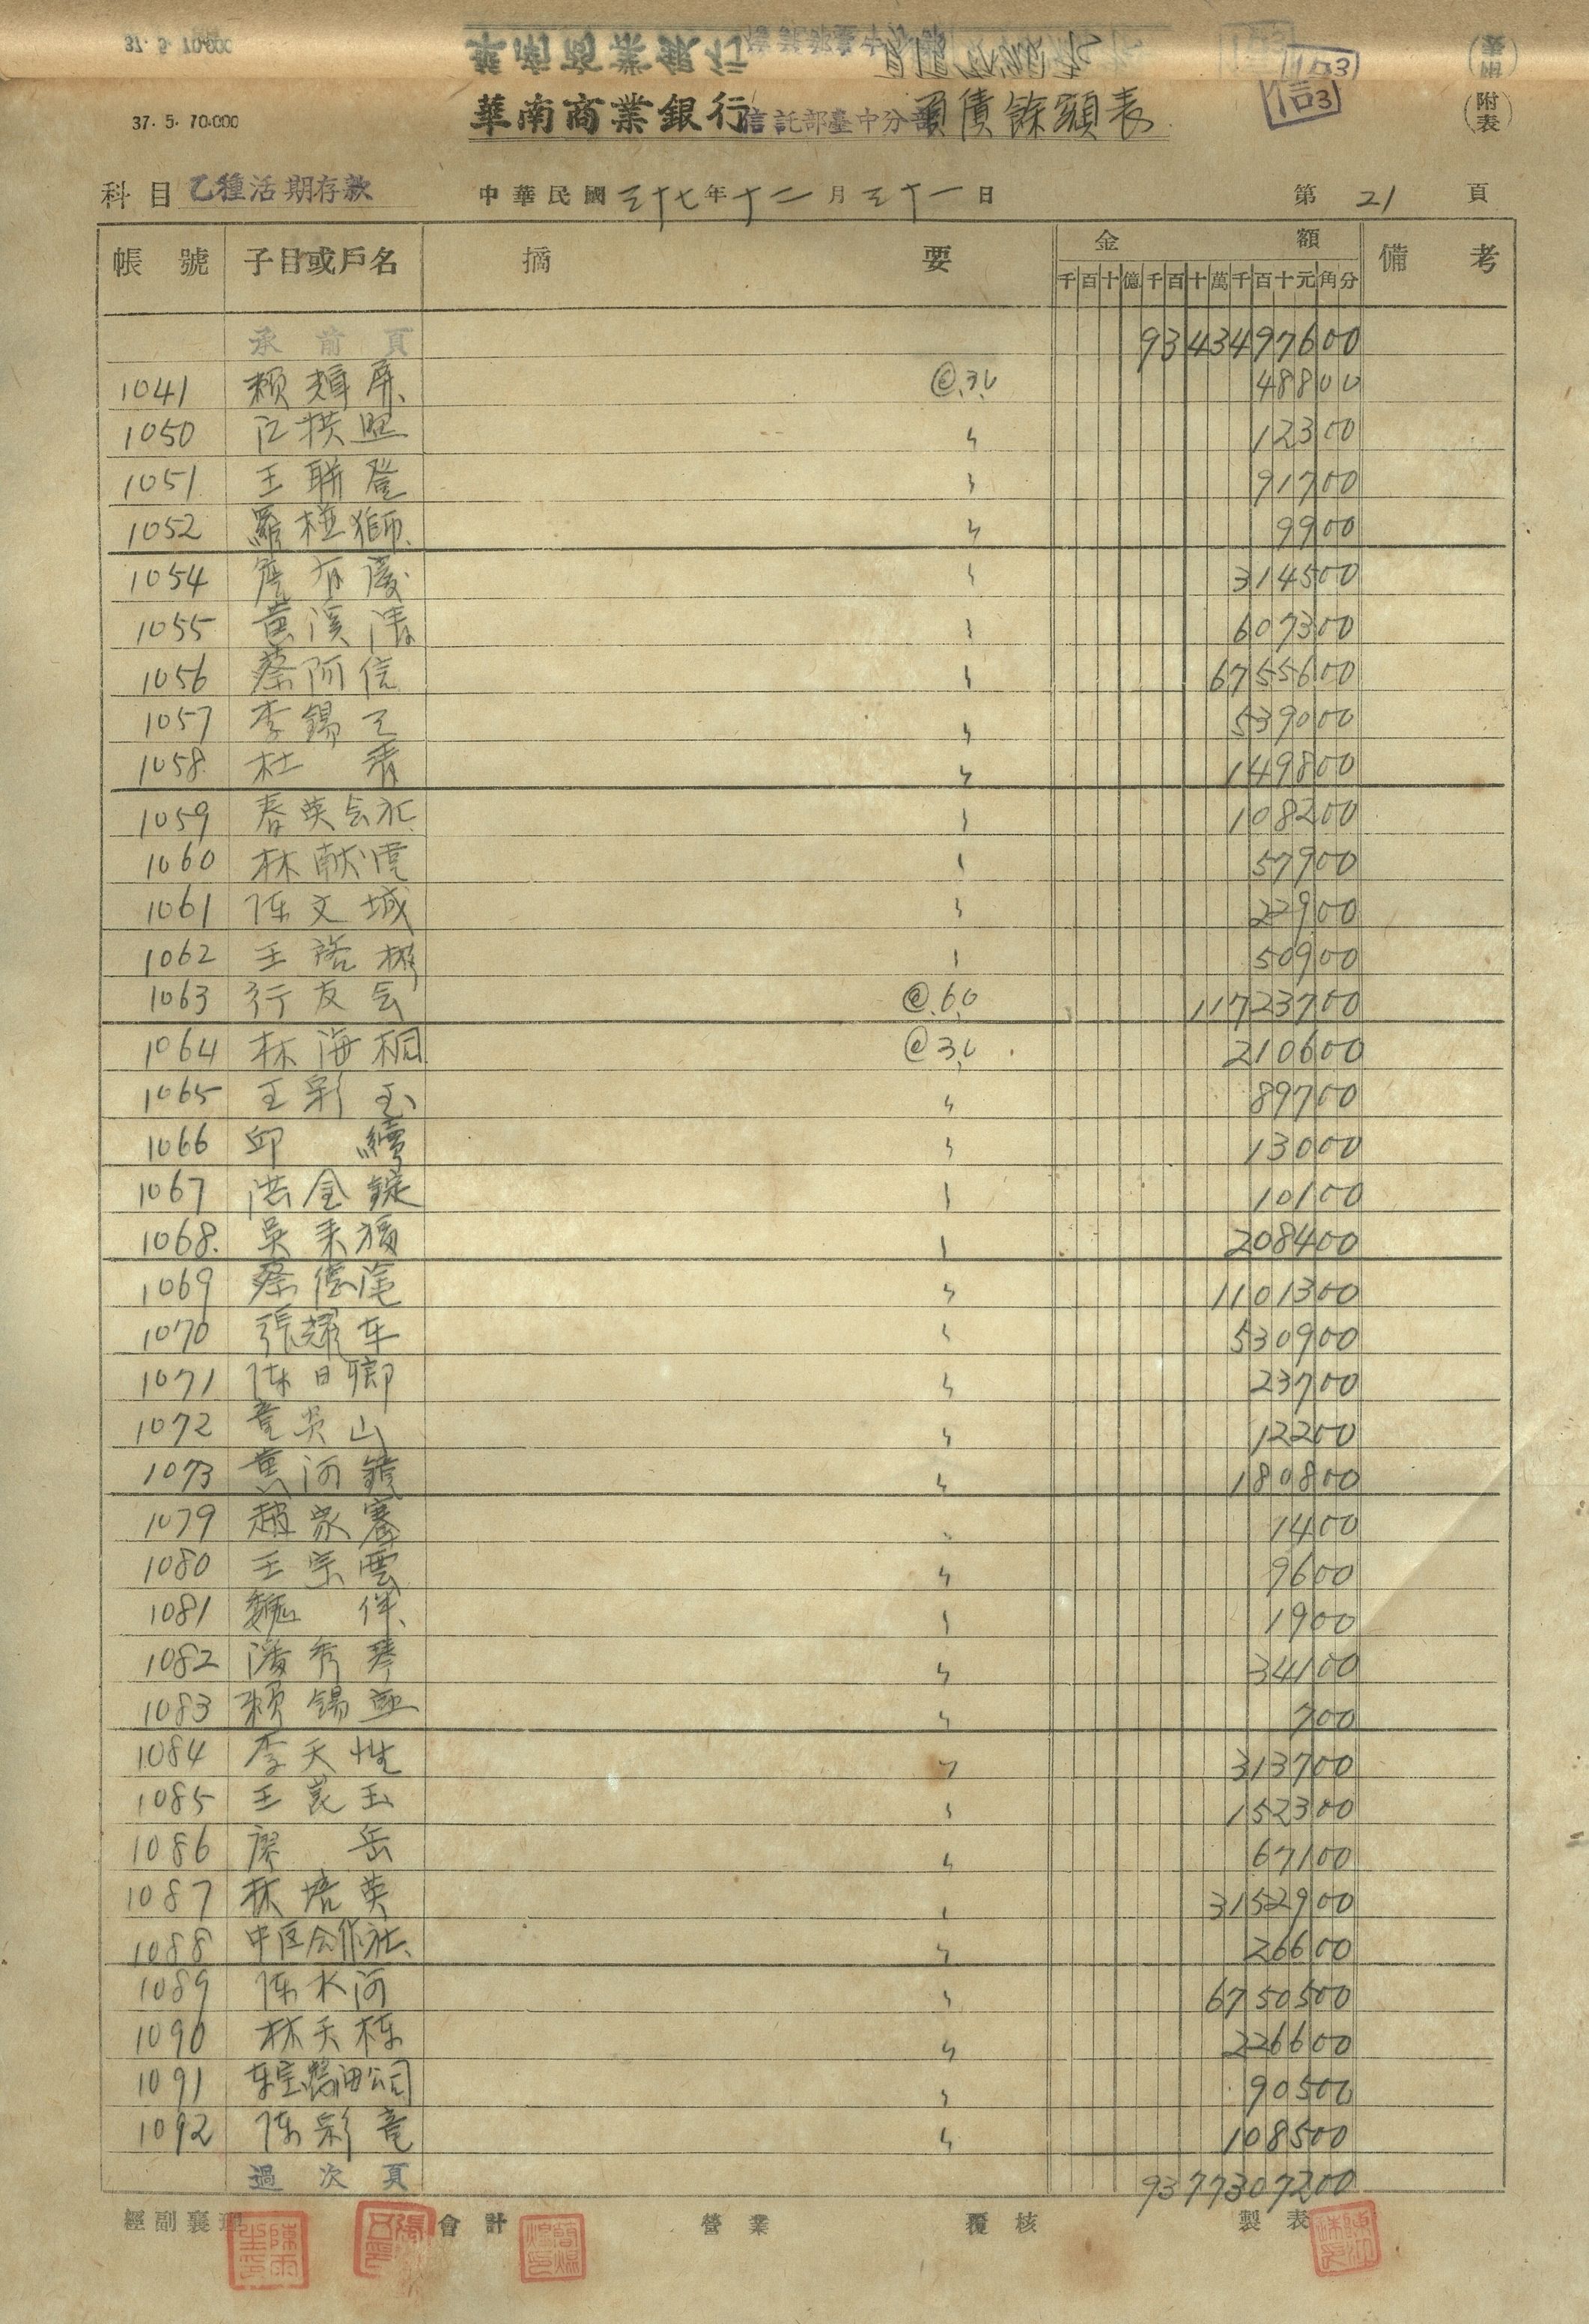 37. 5. 70.000
華南商業銀行信託部臺中分部負債餘額表
信3
(附表)
科目 乙種活期存款 中華民國三十七年十二月三十一日 第21頁
帳號 子目或戶名 摘要 金額 備考
千百十億千百十萬千百十元角分
承前頁 9343497600
1041 賴 屏 @3.0 48800
1050 江 照 〃 12300
1051 王聯登 〃 91700
1052 羅 獅 〃 9900
1054 有慶 〃 314500
1055 黃溪清 〃 607300
1056 蔡阿信 〃 6755600
1057 李錫 〃 539000
1058 杜香 〃 149800
1059 春英会社 〃 108200
1060 林献 〃 57900
1061 陈文城 〃 22900
1062 王 〃 50900
1063 行友会 @6.0 11723700
1064 林海桐 @3.0 210600
1065 王彩玉 〃 89700
1066 邱續 〃 13000
1067 洪金錠 〃 10100
1068 吳来福 〃 208400
1069 蔡 〃 1101300
1070 張耀东 〃 530900
1071 陈日卿 〃 23700
1072 童 山 〃 12200
1073 黃河 〃 180800
1079 趙家騫 〃 1400
1080 王宗雲 〃 9600
1081 魏伴 〃 1900
1082 潘秀琴 〃 34100
1083 賴錫 〃 700
1084 李天性 〃 313700
1085 王 玉 〃 152300
1086 廖岳 〃 67100
1087 林培英 〃 3152900
1088 中区合作社 〃 26600
1089 陈水河 〃 6750500
1090 林天栋 〃 226600
1091 东宝醬油公司 〃 90500
1092 陈彩 〃 108500
過次頁 9377307200
經副襄理 會計 營業 覆核 製表